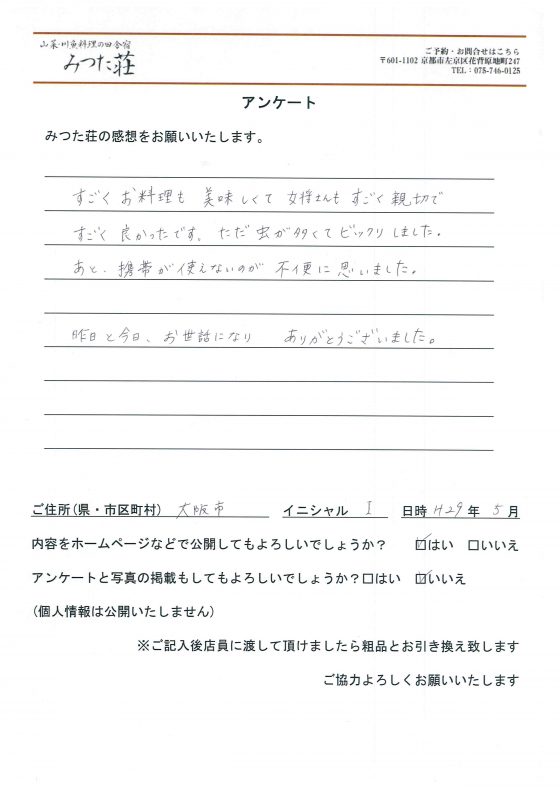 山菜・川魚料理の田舎宿
みつた荘
ご予約・お問合せはこちら
〒601-1102 京都市左京区花背原地町247
TEL：075-746-0125
アンケート
みつた荘の感想をお願いいたします。
すごく お料理も 美味しくて 女将さんも すごく 親切で
すごく 良かったです。ただ 虫が多くて ビックリ しました。
あと、携帯が使えないのが 不便に 思いました。
昨日と今日、お世話になり ありがとうございました。
ご住所(県・市区町村) 大阪市 イニシャル I 日時 H29 年 5 月
内容をホームページなどで公開してもよろしいでしょうか？ ☑はい □いいえ
アンケートと写真の掲載もしてもよろしいでしょうか？□はい ☑いいえ
(個人情報は公開いたしません)
※ご記入後店員に渡して頂けましたら粗品とお引き換え致します
ご協力よろしくお願いいたします